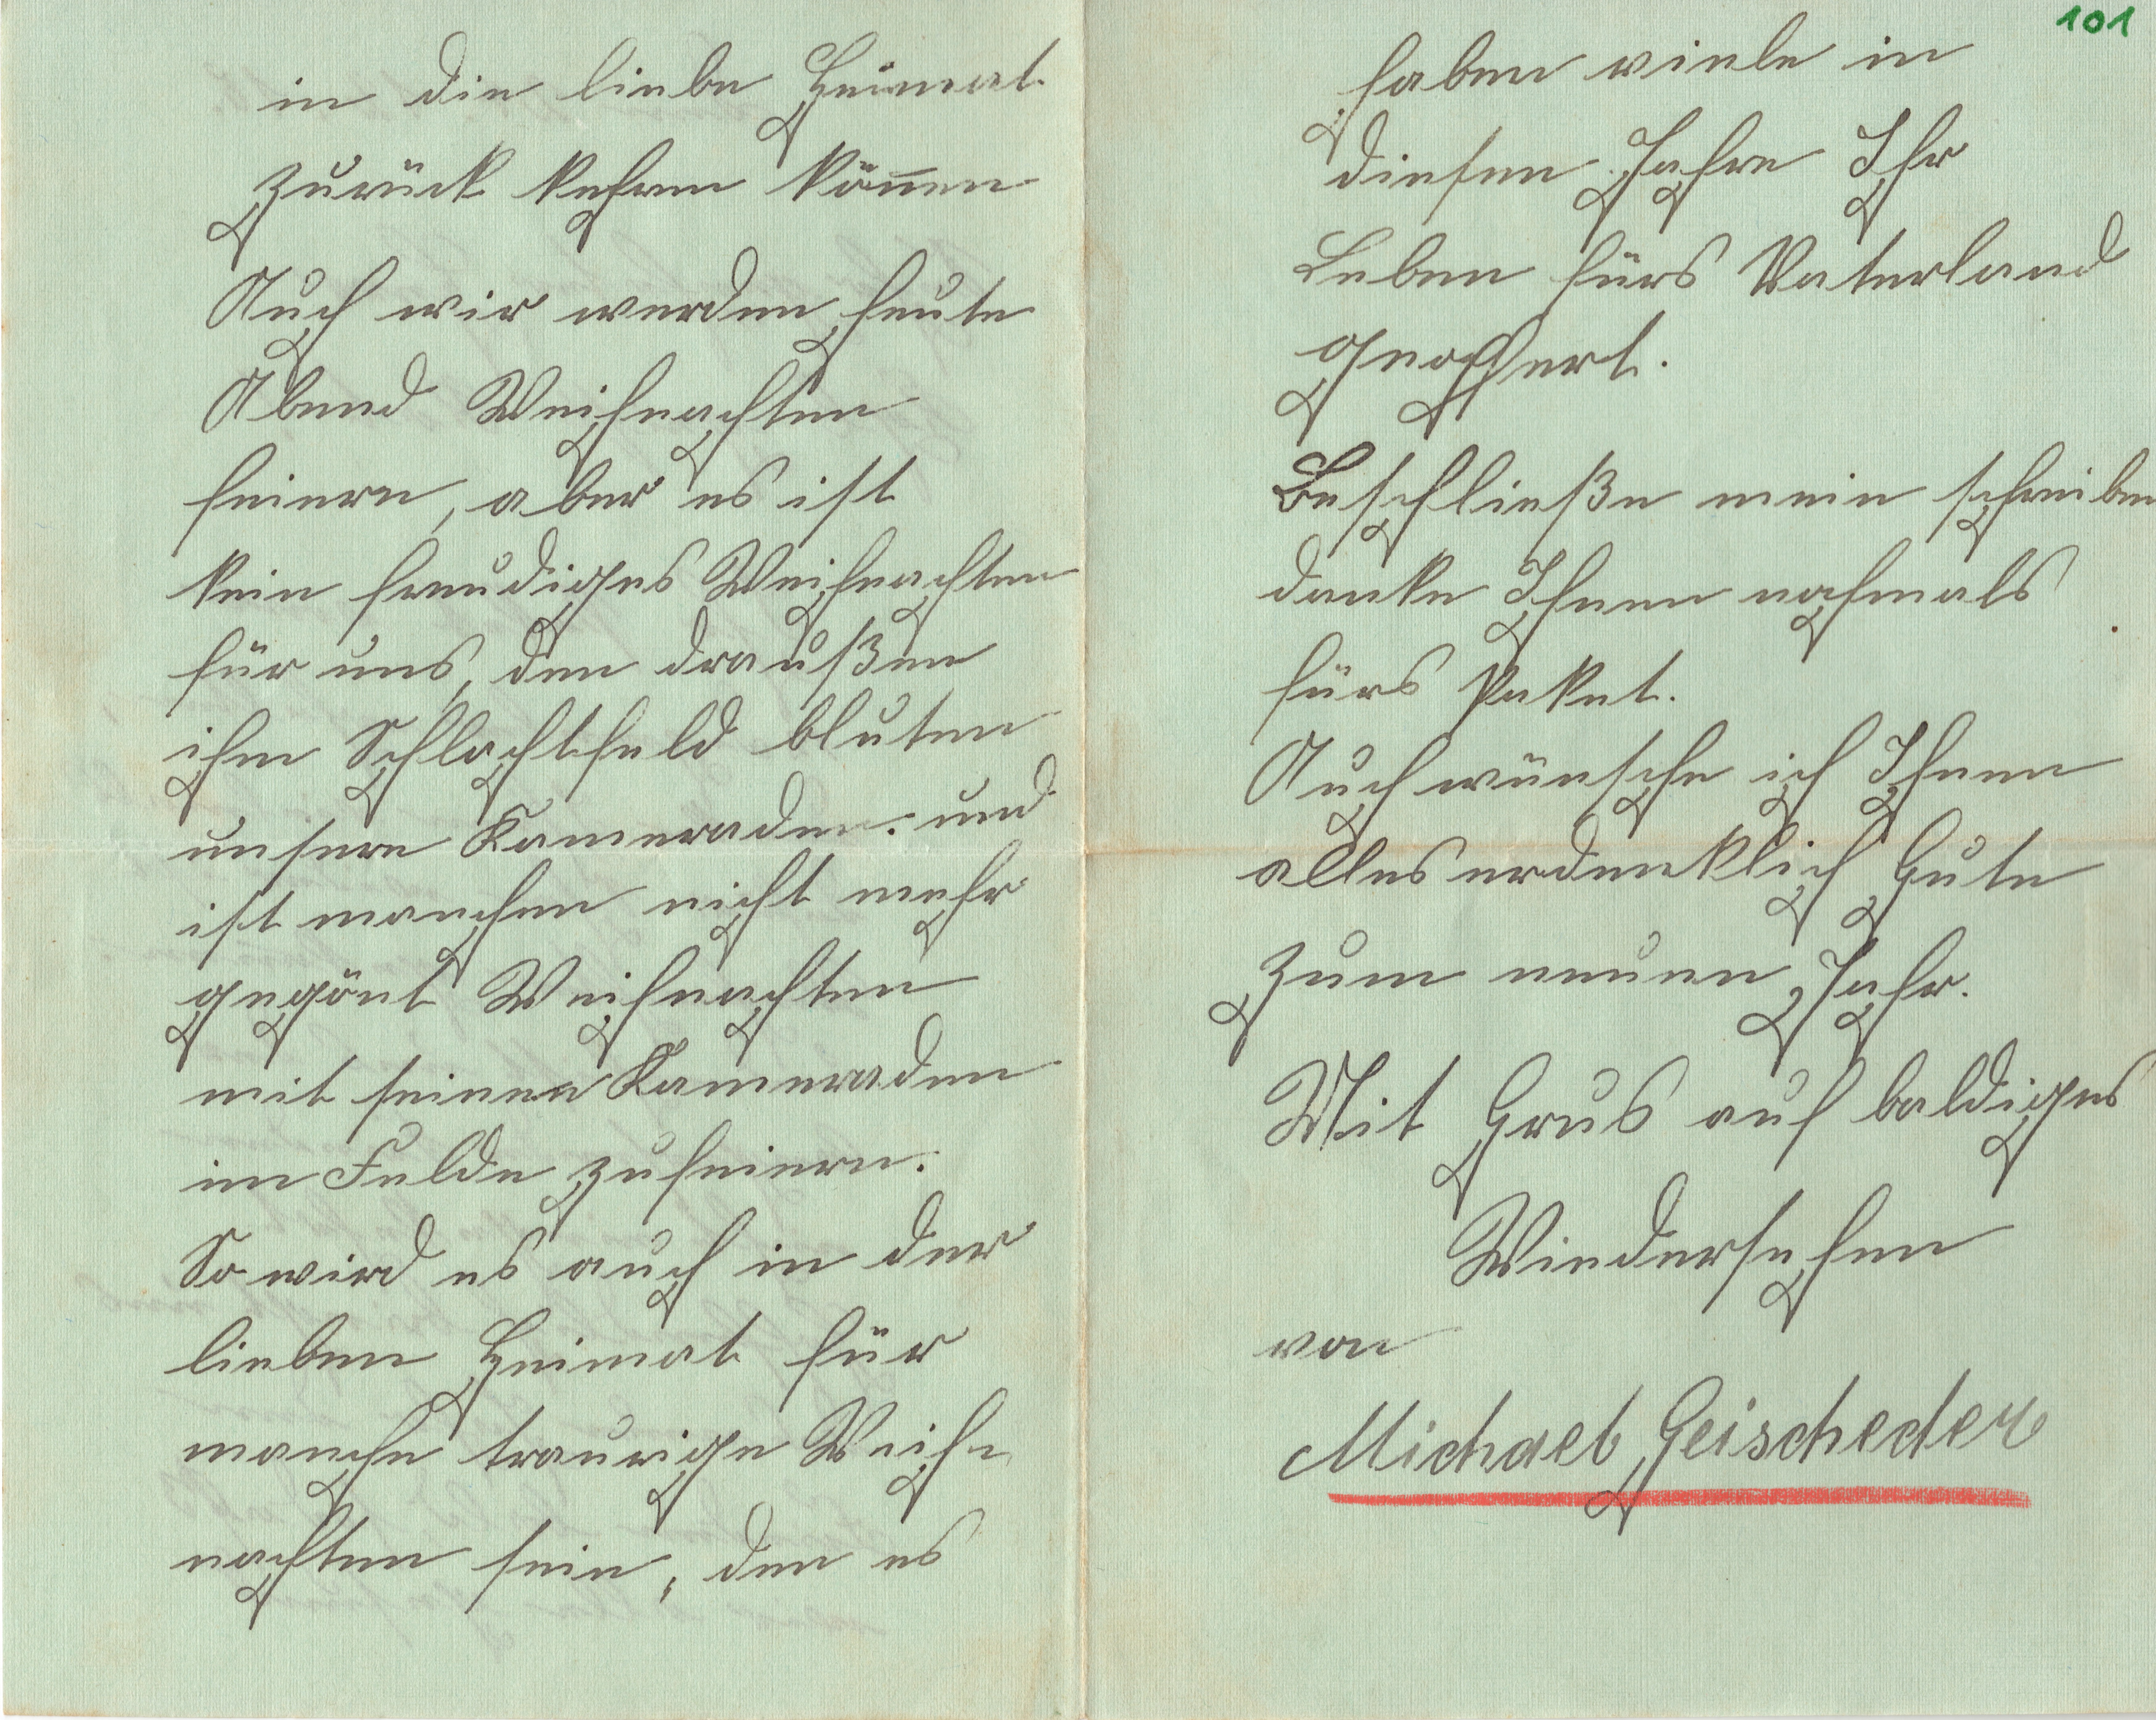 in die liebe Heimat
zurück kehren können
Auch wir werden heute
Abend Weihnachten
feiern, aber es ist
kein freudiges Weihnachten
für uns, den draußen
ihm Schlachtfeld bluten
unsere Kameraden. und
ist manchen nicht mehr
gegönt Weihnachten
mit seinen Kameraden
im Felde zufeiern.
So wird es auch in der
lieben Heimat für
manche traurige Weih-
nachten sein, den es
101
haben viele in
diesen Jahre Ihr
Leben fürs Vaterland
geopfert.
Beschließe mein schreiben
danke Ihnen nochmals
fürs Paket.
Auch wünsche ich Ihnen
alles erdenklich Gute
zum neuen Jahr.
Mit Grus auf baldiges
Wiedersehen
von
Michael Geischeder